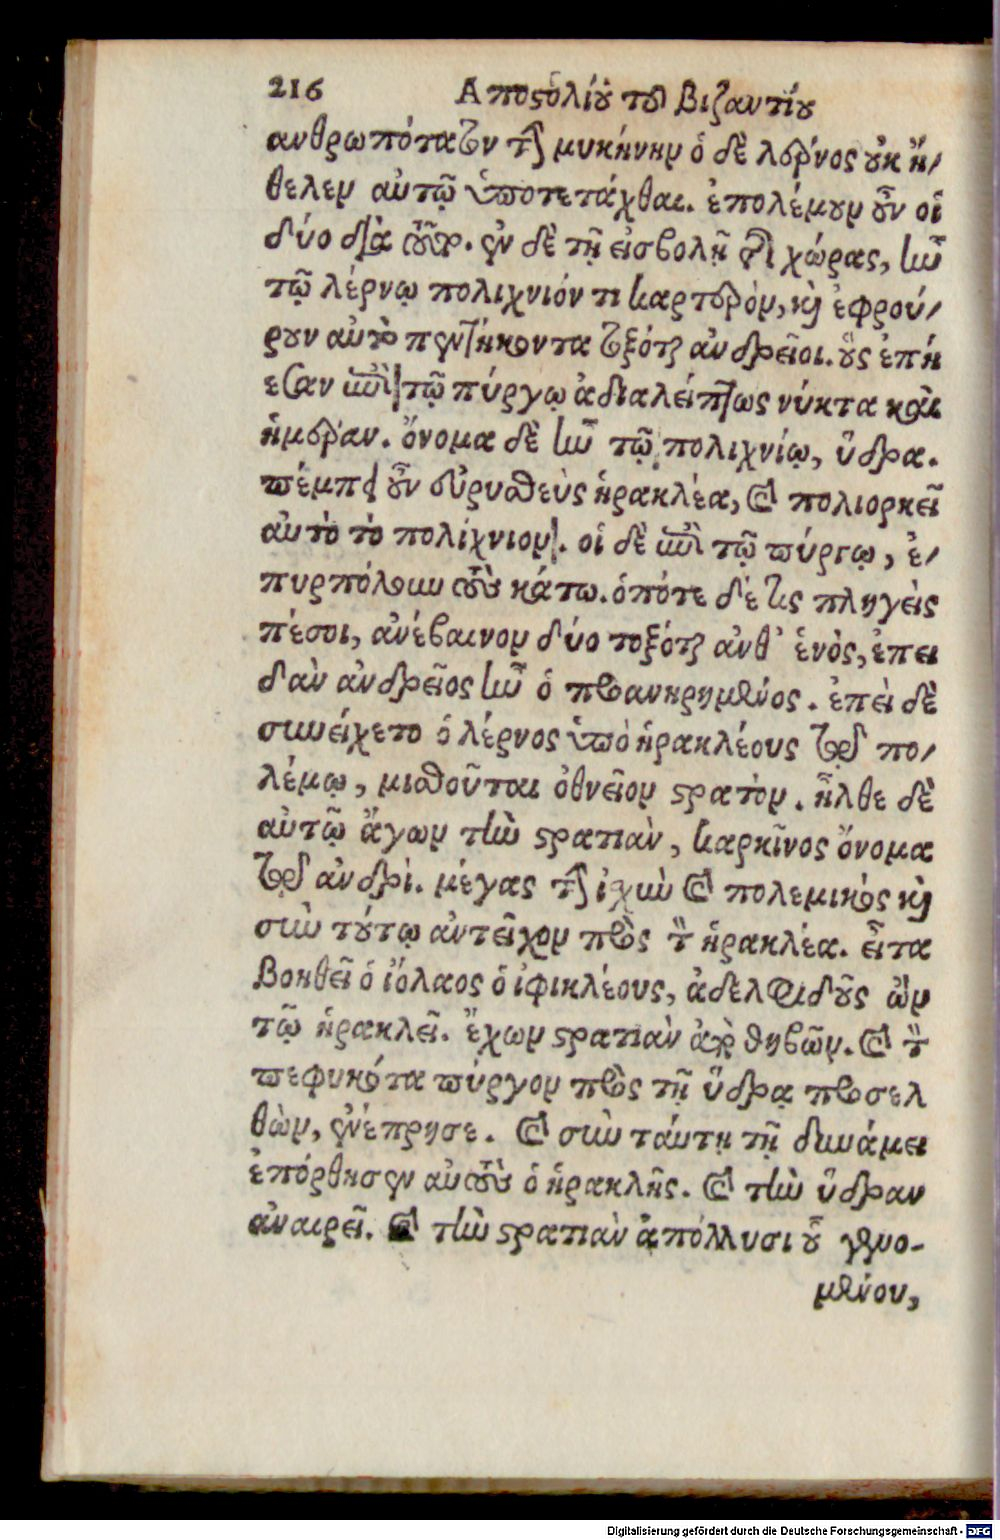 216 Αποστολίου τοῦ Βιζαντίου
ανθρωπότατον τῆς μυκήνην ὁ δὲ λέρνος οὐκ ἤ/
θελεν αὐτῷ ὑποτετάχθαι. ἐπολέμουν οὖν οἱ
δύο διὰ τοῦτο. ἐν δὲ τῇ εἰσβολῇ τῆς χώρας, ἦν
τῷ λέρνῳ πολιχνιόν τι καρτερὸν, καὶ ἐφρού/
ρουν αὐτὸ πεντήκοντα τοξόται ανδρεῖοι. οὓς ἐπή
εσαν ἐπὶ τῷ πύργῳ ἀδιαλείπτως νύκτα καὶ
ἡμέραν. ὄνομα δὲ ἦν τῷ πολιχνίῳ, ὕδρα.
πέμπει οὖν εὐρυσθεὺς ἡρακλέα, καὶ πολιορκεῖ
αὐτὸ τὸ πολίχνιον. οἱ δὲ ἐπὶ τῷ πύργῳ, ἐ/
πυρπόλουν τοὺς κάτω. ὁπότε δέ τις πληγεὶς
πέσοι, ἀνέβαινον δύο τοξόται ἀνθ' ἑνὸς, ἐπει
δὰν ἀνδρεῖος ἦν ὁ προανηρημένος. ἐπεὶ δὲ
συνείχετο ὁ λέρνος ὑπὸ ἡρακλέους τῷ πο/
λέμῳ, μισθοῦται ὀθνεῖον στρατὸν. ἦλθε δὲ
αὐτῷ ἄγων τὴν στρατιὰν, καρκῖνος ὄνομα
τῷ ἀνδρὶ. μέγας τὴν ἰχὺν καὶ πολεμικὸς καὶ
σὺν τούτῳ αντεῖχον πρὸς τὸν ἡρακλέα. εἶτα
βοηθεῖ ὁ ἰόλαος ὁ ἰφικλέους, ἀδελφιδοῦς ὢν
τῷ ἡρακλεῖ. ἔχων στρατιὰν ἀπὸ θηβῶν. καὶ τὸν
πεφυκότα πύργον πρὸς τῇ ὕδρᾳ προσελ
θὼν, ἐνέπρησε. καὶ σὺν ταύτῃ τῇ δυνάμει
ἐπόρθησεν αὐτοὺς ὁ ἡρακλῆς. καὶ τὴν ὕδραν
ἀναιρεῖ. καὶ τὴν στρατιὰν ἀπόλλυσι οὗ γενο-
μένου,
Digitalisierung gefördert durch die Deutsche Forschungsgemeinschaft - DFG